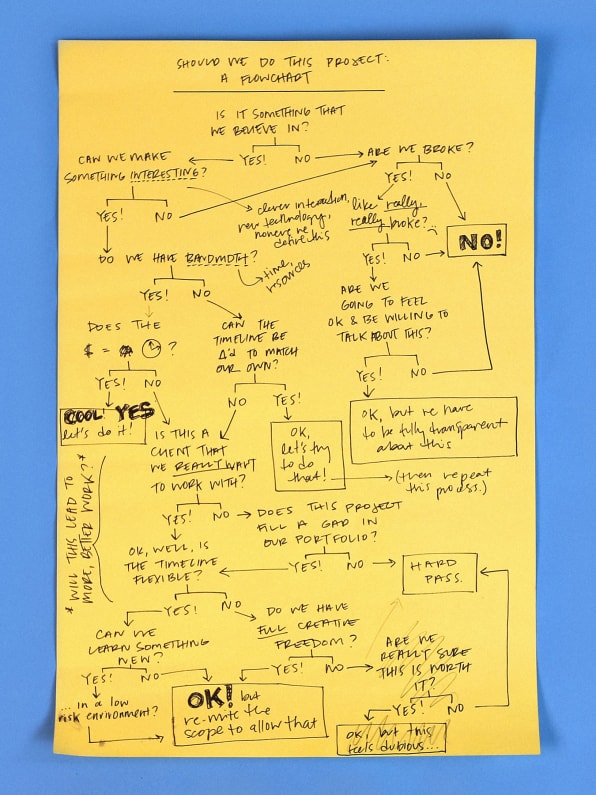 SHOULD WE DO THIS PROJECT:
A FLOWCHART
IS IT SOMETHING THAT
WE BELIEVE IN?
YES! NO
ARE WE BROKE?
YES! NO
CAN WE MAKE
SOMETHING INTERESTING?
YES! NO
clever interaction,
new technology,
however we
define this
like really,
really broke?
YES! NO
NO!
DO WE HAVE BANDWIDTH?
time,
resources
YES! NO
ARE WE
GOING TO FEEL
OK & BE WILLING TO
TALK ABOUT THIS?
YES! NO
DOES THE
$ = ?
YES! NO
CAN THE
TIMELINE BE
Δ'd TO MATCH
OUR OWN?
NO YES!
COOL! YES
let's do it!
OK,
let's try
to do
that!
(then repeat
this process.)
OK, but we have
to be fully transparent
about this
IS THIS A
CLIENT THAT
WE REALLY WANT
TO WORK WITH?
YES! NO
* WILL THIS LEAD TO
MORE, BETTER WORK? *
DOES THIS PROJECT
FILL A GAP IN
OUR PORTFOLIO?
YES! NO
HARD
PASS.
OK, WELL, IS
THE TIMELINE
FLEXIBLE?
YES! NO
DO WE HAVE
FULL CREATIVE
FREEDOM?
YES! NO
CAN WE
LEARN SOMETHING
NEW?
YES! NO
ARE WE
REALLY SURE
THIS IS WORTH
IT?
YES! NO
...in a low
risk environment?
OK! but
re-write the
scope to allow that
OK, but this
feels dubious...